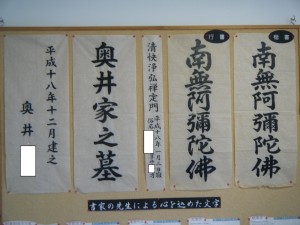 楷書
南無阿彌陀佛
行書
南無阿彌陀佛
清快淨弘禅定門
平成十八年一月二日
俗名
奥井家之墓
平成十八年十二月建之
奥井
書家の先生による心を込めた文字